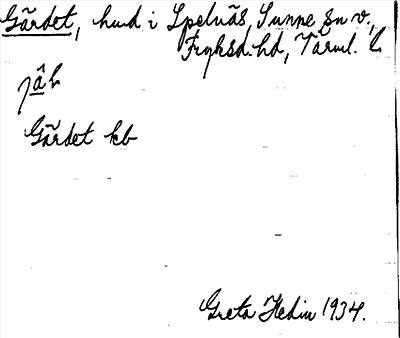 Gärdet, hmd i Spelnäs, Sunne sn v.,
Fryksd. hd, Värml. l
Gärdet kb
Greta Hedin 1934.